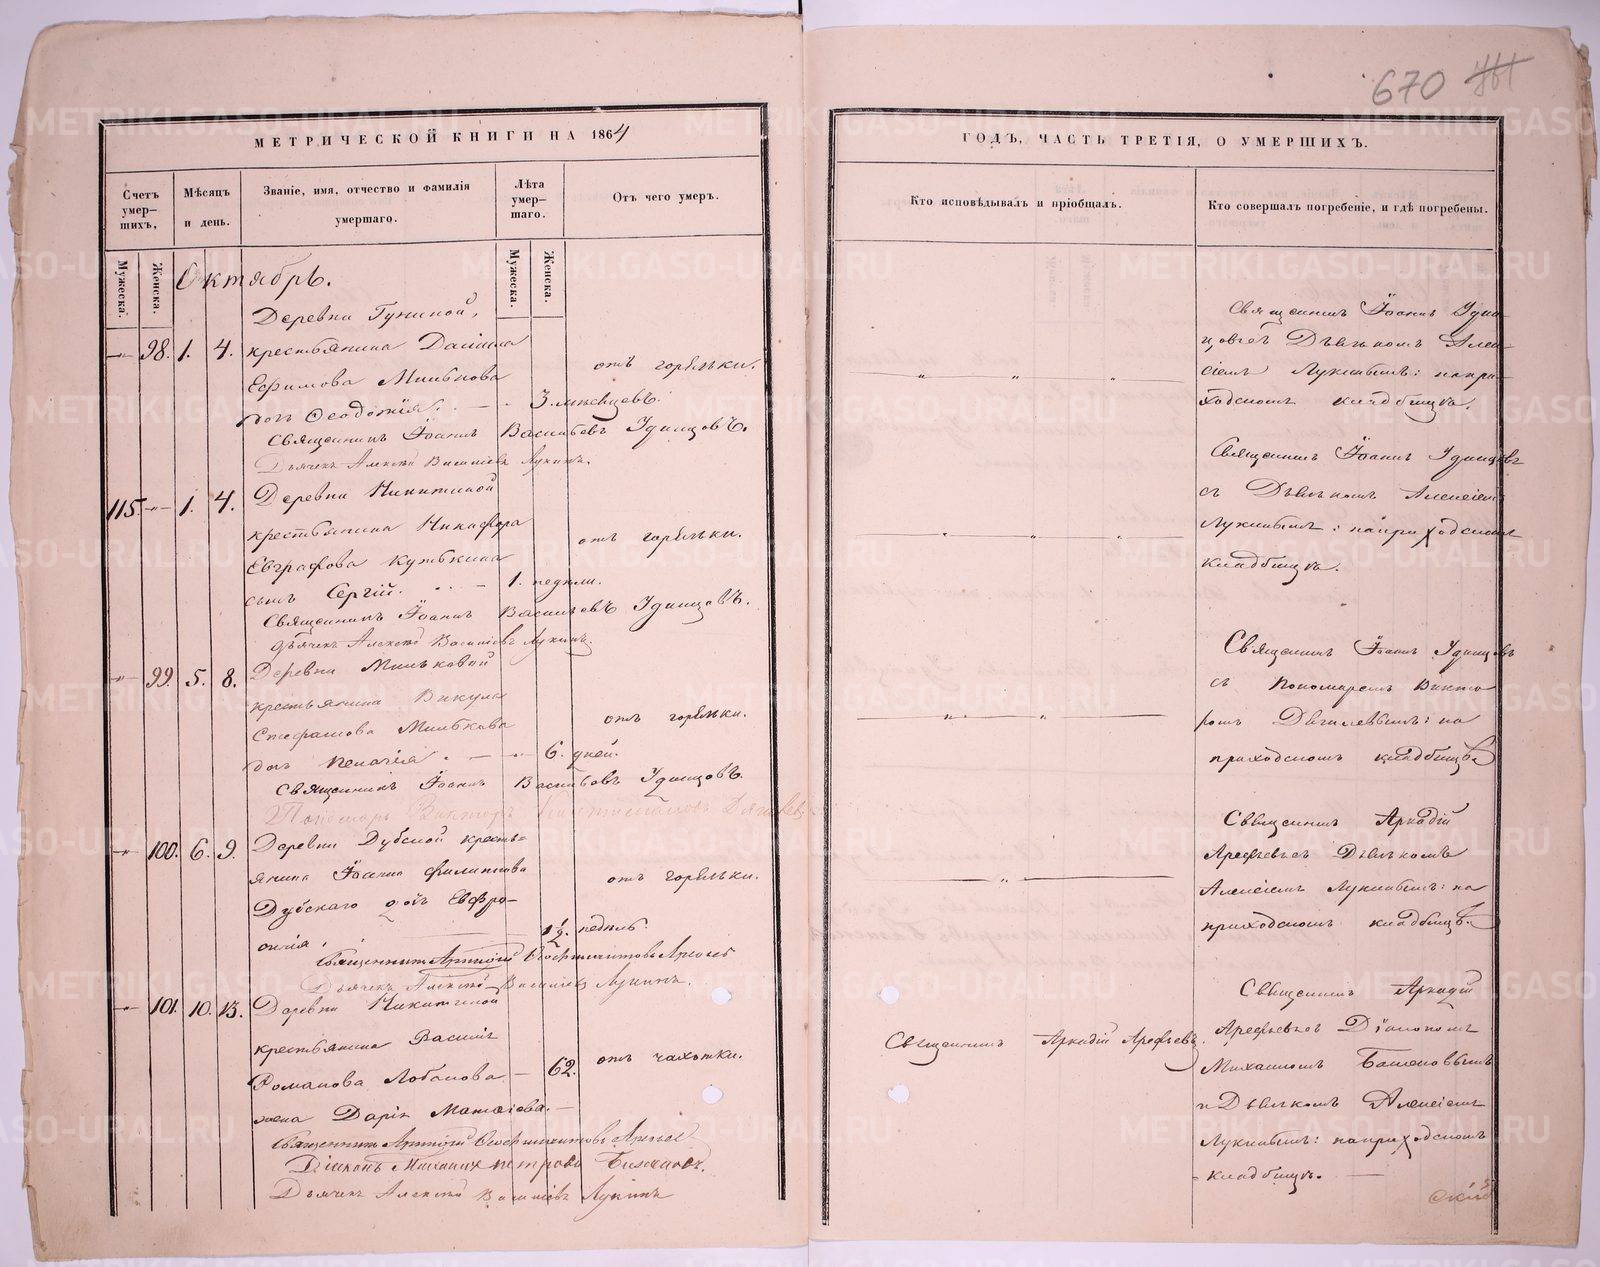 670
МЕТРИЧЕСКОЙ КНИГИ НА 1864
ГОДЪ, ЧАСТЬ ТРЕТІЯ, О УМЕРШИХЪ.
Счетъ умер-
шихъ,
Мѣсяцъ
и день.
Званіе, имя, отчество и фамилія
умершаго.
Лѣта
умер-
шаго.
Отъ чего умеръ.
Кто исповѣдывалъ и пріобщалъ.
Кто совершалъ погребеніе, и гдѣ погребены.
Мужеска.
Женска.
Мужеска.
Женска.
Октябрь.
Деревни Гуниной,
98. 1. 4. крестьянина
Ефимова Милькова
отъ горячки.
дочь Ѳеодосія. 3. мѣсяцевъ.
Священникъ Іоаннъ Васильевъ Удинцовъ.
Дьячекъ Алексѣй Васильевъ Лукинъ.
Священникъ Іоаннъ Удин-
цовъ съ Дьячкомъ Алек-
сіемъ Лукинымъ: на при-
ходскомъ кладбищѣ.
115. 1. 4. Деревни Никитиной
крестьянина Никифора
Евграфова Кутькина
отъ горячки.
сынъ Сергій. 1. недѣли.
Священникъ Іоаннъ Васильевъ Удинцовъ.
Дьячекъ Алексѣй Васильевъ Лукинъ.
Священникъ Іоаннъ Удинцовъ
съ Дьячкомъ Алексіемъ
Лукинымъ: на приходскомъ
кладбищѣ.
99. 5. 8. Деревни Мильковой
крестьянина Викула
Стефанова Милькова
отъ горячки.
дочь Пелагія. 6. дней.
Священникъ Іоаннъ Васильевъ Удинцовъ.
Пономарь Викторъ
Священникъ Іоаннъ Удинцовъ
съ Пономаремъ Викто-
ромъ Дягилевымъ: на
приходскомъ кладбищѣ.
100. 6. 9. Деревни Дубской кресть-
янина Іоанна Филиппова
отъ горячки.
Дубскаго дочь Евфро-
синія. 1½. недѣль.
Священникъ Аркадій Арефьевъ
Дьячекъ Алексѣй Васильевъ Лукинъ.
Священникъ Аркадій
Арефьевъ съ Дьячкомъ
Алексіемъ Лукинымъ: на
приходскомъ кладбищѣ.
101. 10. 13. Деревни Никитиной
крестьянина Василія
Романова Лобанова 62. отъ чахотки.
жена Дарія Матѳіева.
Священникъ Аркадій Арефьевъ
Діаконъ Михаилъ Петровъ Баженовъ.
Дьячекъ Алексѣй Васильевъ Лукинъ
Священникъ Аркадій Арефьевъ.
Священникъ Аркадій
Арефьевъ съ Діакономъ
Михаиломъ Баженовымъ
и Дьячкомъ Алексіемъ
Лукинымъ: на приходскомъ
кладбищѣ.
METRIKI.GASO-URAL.RU